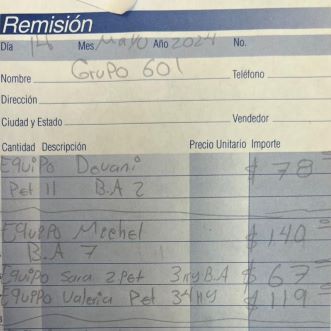 Remisión
Día 14 Mes Mayo Año 2024 No.
Nombre Grupo 601 Teléfono
Dirección
Ciudad y Estado Vendedor
Cantidad Descripción Precio Unitario Importe
Equipo Devani $ 78
Pet 11 B.A 2
Equipo Mechel $ 140
B.A 7
Equipo Sara 2 Pet B.A $ 67
Equipo Valeria Pet $ 119